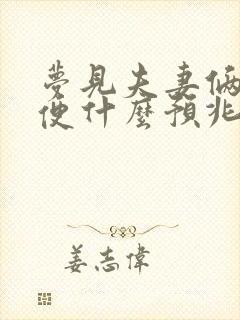 夢見夫妻倆
便什麼預兆
姜志偉